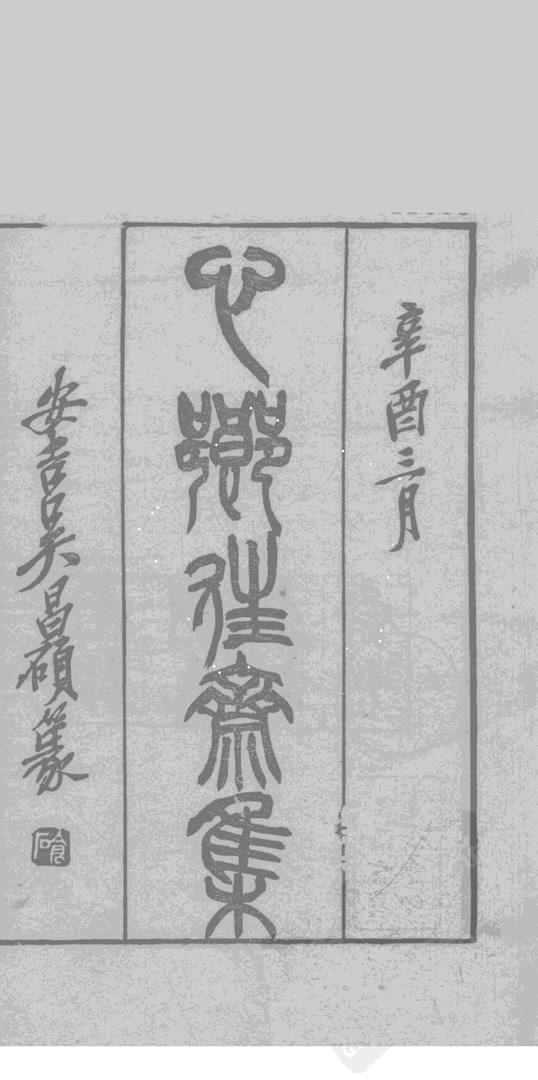 辛酉三月
心鄉往齋集
安吉吳昌碩篆